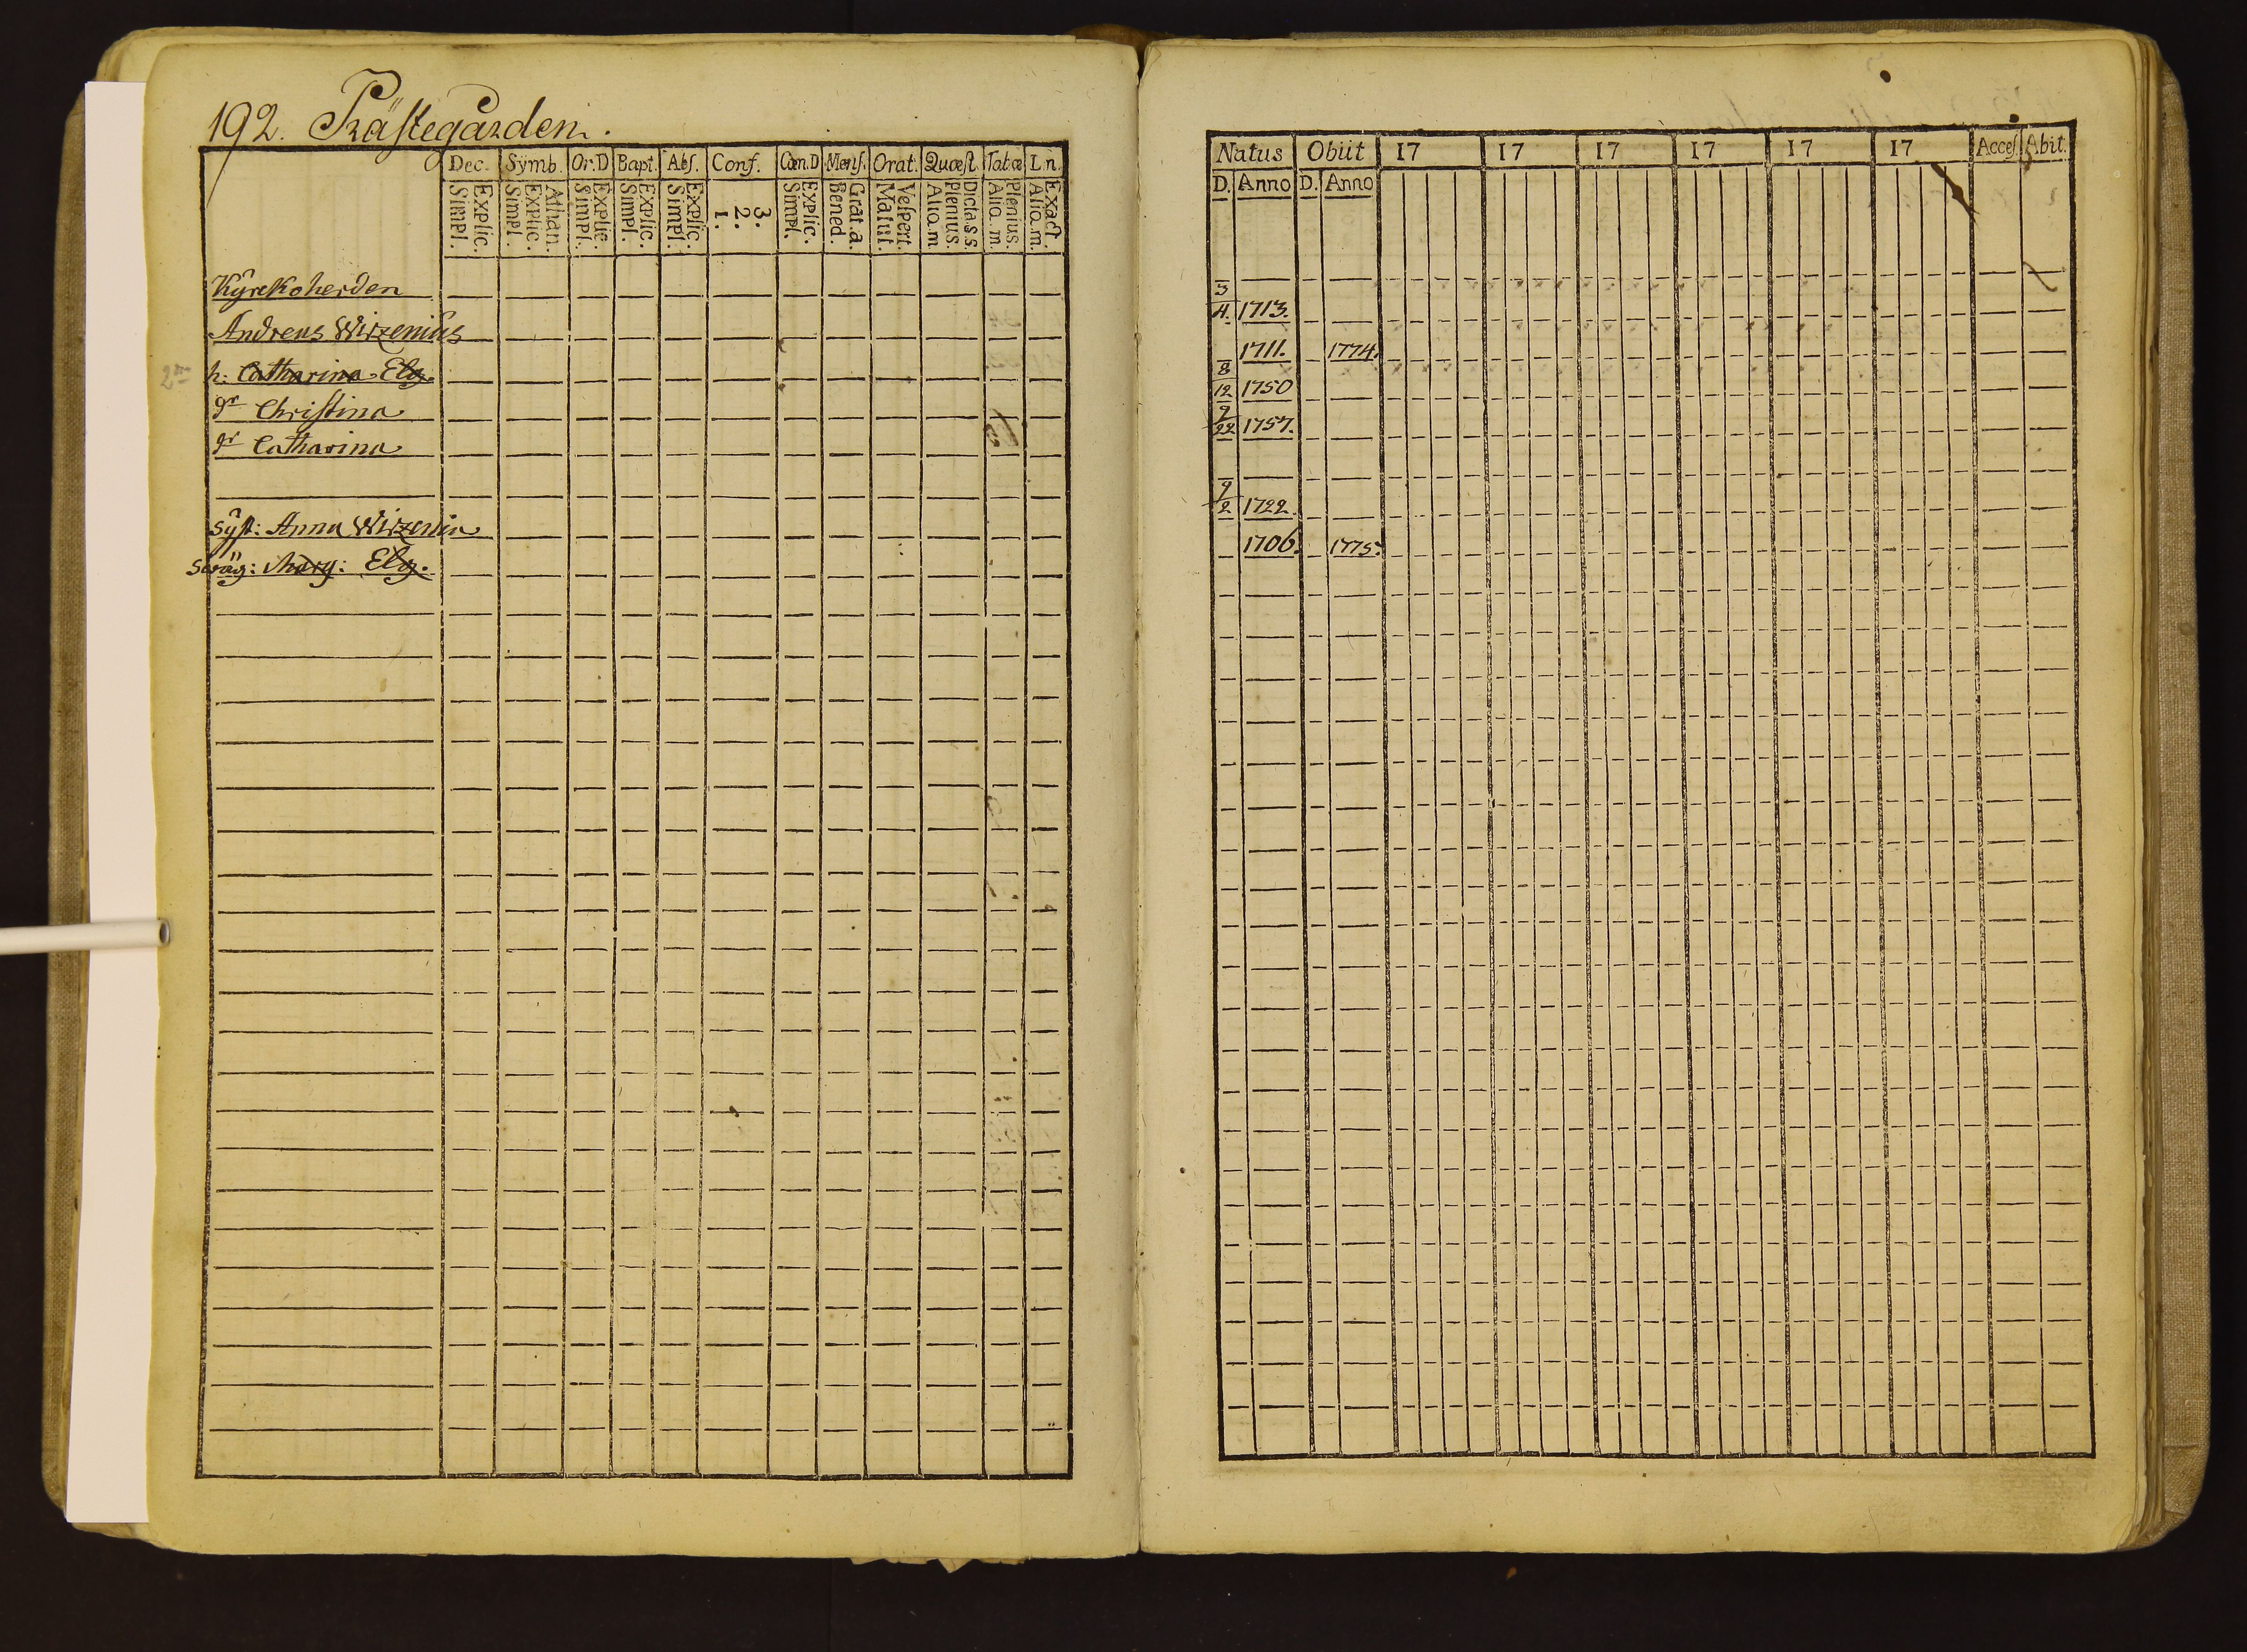 192. Prästegården.
Dec. Sÿmb. Or.D Bapt. Abs. Conf. Cœn.D Mens. Orat. Quæst. Tabæ L.n.
Explic. Simpl. Athan. Explic. Simpl. Explic. Simpl. Explic. Simpl. Explic. Simpl. 3. 2. 1. Explic. Simpl. Grat.a. Bened. Vespert. Matut. Dicta s.s. Plenius. Aliq.m Plenius. Aliq.m. Exact. Aliq.m.
Kyrckoherden
Andreas Wirzenius
2
h: Catharina Elg.
gr Christina
gr Catharina
Syst: Anna Wirzenia
Swäg: Marg: Elg.
Natus Obiit 17 17 17 17 17 17 Acces. Abit.
D. Anno D. Anno
3/4. 1713.
1711. 1774.
8/12 1750
9/22 1757.
9/2 1722.
1706. 1775.